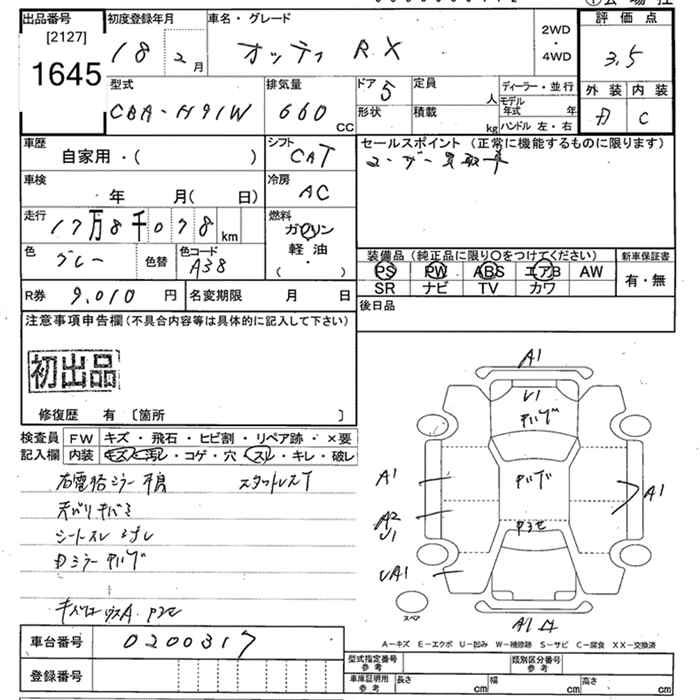 出品番号
[2127]
1645
初度登録年月
18 2月
車名・グレード
オッティ RX
2WD
・
4WD
評価点
3.5
外装 内装
D C
型式
CBA-H91W
排気量
660 CC
ドア 5
形状
定員 人
積載 kg
ディーラー・並行
モデル年式 年
ハンドル 左・右
車歴
自家用・( )
シフト
CAT
セールスポイント (正常に機能するものに限ります)
ユーザー買取車
車検
年 月( 日)
冷房
AC
走行
17万8千078km
燃料
ガソリン
軽・油
・
( )
色
グレー
色替
色コード
A38
装備品 (純正品に限り○をつけてください)
新車保証書
PS PW ABS エアB AW
SR ナビ TV カワ
有・無
R券 9,010 円
名変期限 月 日
後日品
注意事項申告欄 (不具合内容等は具体的に記入して下さい)
初出品
修復歴 有 〔箇所 〕
検査員
記入欄
FW キズ・飛石・ヒビ割・リペア跡・×要
内装 キズ・汚れ・コゲ・穴・スレ・キレ・破レ
右電格ミラー不良 スタットレスT
シートスレ
Dミラー
A1
U1
A1
A1
A2
U1
UA1
A1
スペア
A−キズ E−エクボ U−凹み W−補修跡 S−サビ C−腐食 XX−交換済
車台番号 0200317
登録番号
型式指定番号
参考
類別区分番号
参考
車庫証明用
参考
長さ cm 幅 cm 高さ cm